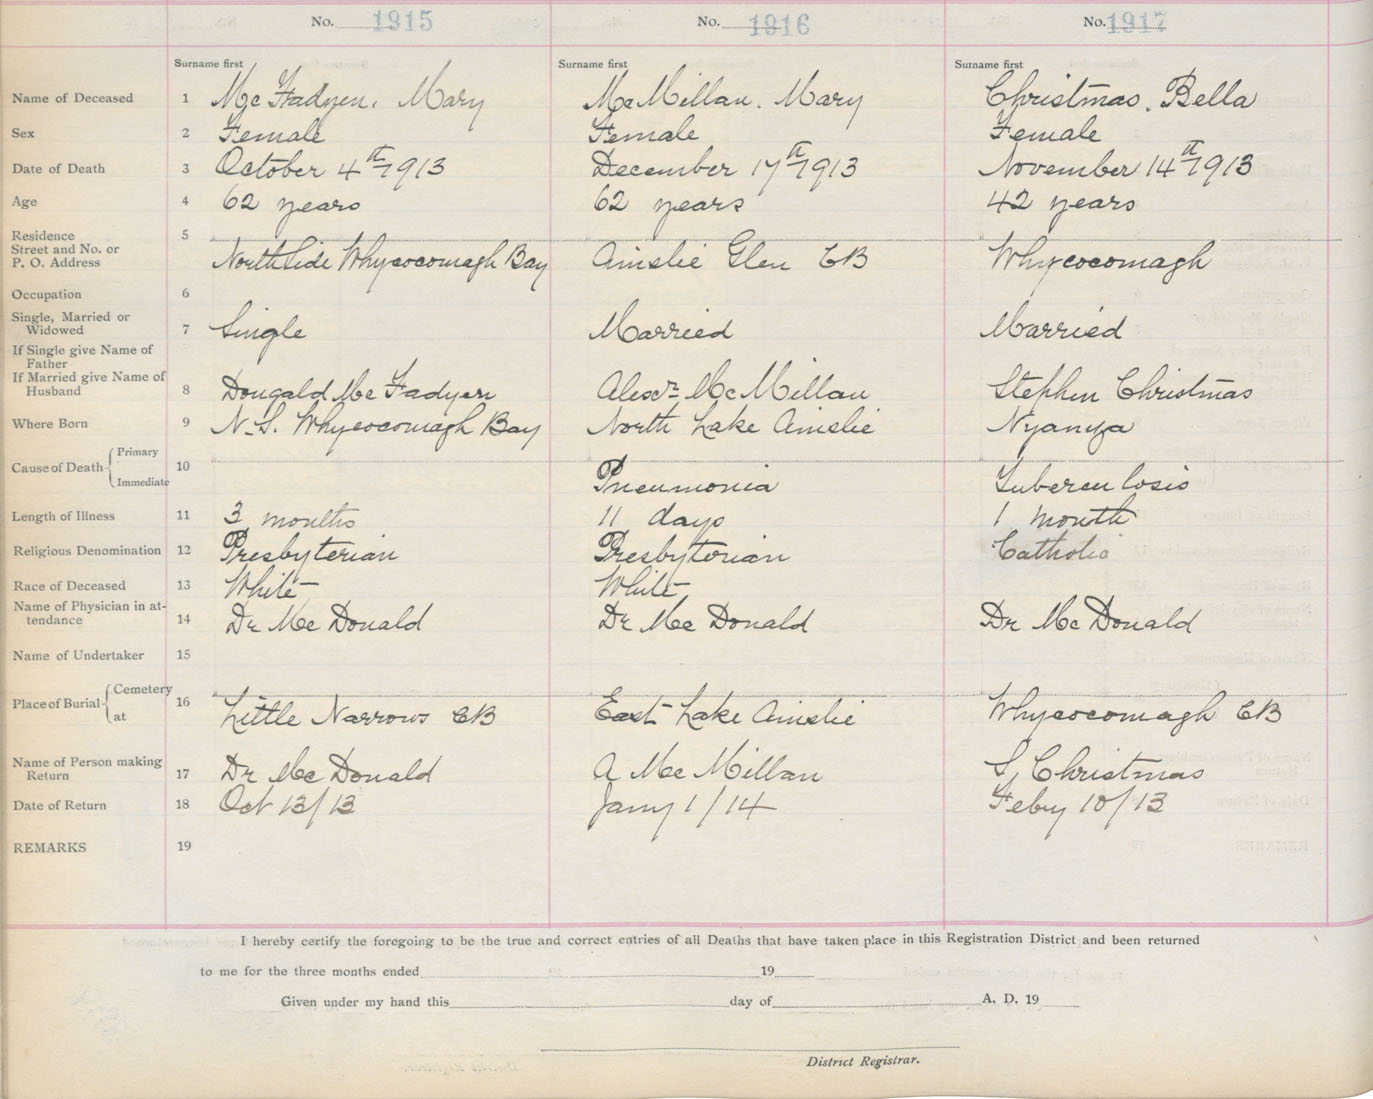 No. 1915 No. 1916 No. 1917
Surname first Surname first Surname first
Name of Deceased 1 McFadyen, Mary McMillan, Mary Christmas, Bella
Sex 2 Female Female Female
Date of Death 3 October 4th 1913 December 17th 1913 November 14th 1913
Age 4 62 years 62 years 42 years
Residence 5
Street and No. or
P. O. Address North Side Whycocomagh Bay Ainslie Glen CB Whycocomagh
Occupation 6
Single, Married or
Widowed 7 Single Married Married
If Single give Name of
Father
If Married give Name of
Husband 8 Dougald McFadyen Alexr. McMillan Stephen Christmas
Where Born 9 N.S. Whycocomagh Bay North Lake Ainslie Nyanza
Cause of Death Primary
10 Pneumonia Tuberculosis
Immediate
Length of Illness 11 3 months 11 days 1 month
Religious Denomination 12 Presbyterian Presbyterian Catholic
Race of Deceased 13 White White
Name of Physician in at-
tendance 14 Dr McDonald Dr McDonald Dr McDonald
Name of Undertaker 15
Place of Burial Cemetery
at 16 Little Narrows CB East Lake Ainslie Whycocomagh CB
Name of Person making
Return 17 Dr McDonald A McMillan S, Christmas
Date of Return 18 Oct 13/13 Jany 1/14 Feby 10/13
REMARKS 19
I hereby certify the foregoing to be the true and correct entries of all Deaths that have taken place in this Registration District and been returned
to me for the three months ended 19
Given under my hand this day of A. D. 19
District Registrar.